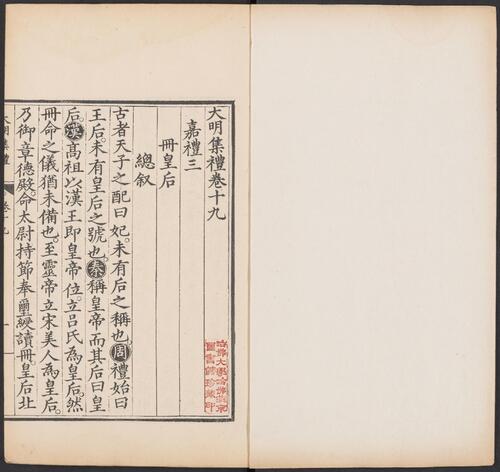 大明集禮卷十九
嘉禮三
冊皇后
總叙
古者天子之配曰妃。未有后之稱也。周禮始曰
王后。未有皇后之號也。秦稱皇帝而其后曰皇
后。漢高祖以漢王即皇帝位。立吕氏為皇后。然
冊命之儀猶未備也。至靈帝立宋美人為皇后。
乃御章德殿。命太尉持節奉璽綬讀冊。皇后北
大明集禮
卷十九
一
哈佛大學哈佛燕京
圖書館珍藏印